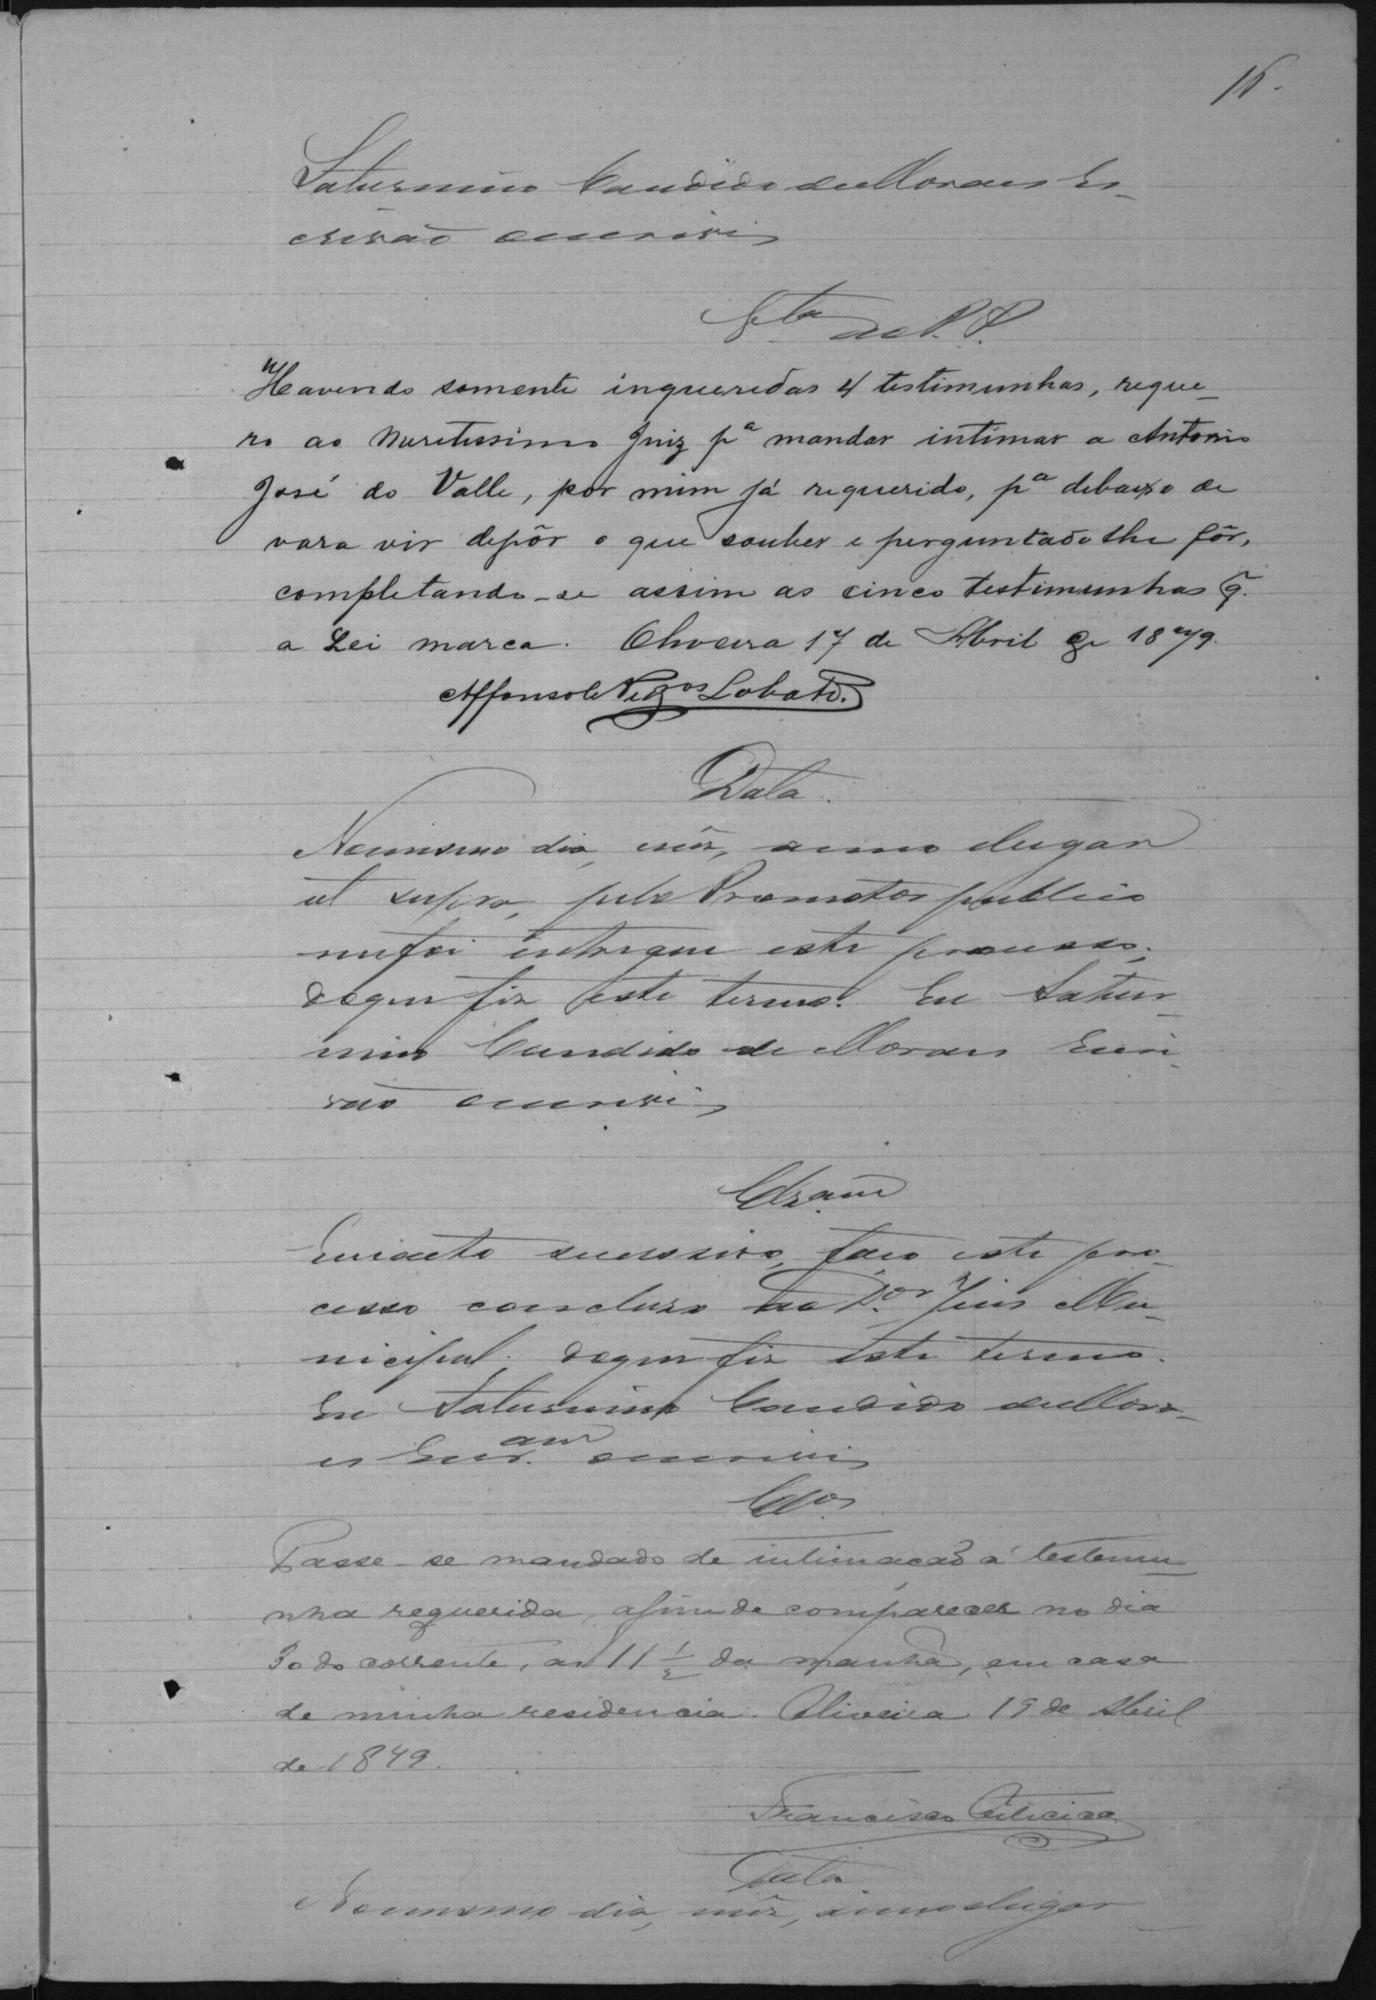 16.
Saturnino Candido de Moraes Es-
crivão o escrivi
Vta ao P. P.
Havendo somente inqueredas 4 testimunhas, reque-
ro ao Meretissimo Juiz pa mandar intimar a Antonio
José do Valle, por mim já requerido, pa debaixo de
vara vir depôr o que souber e perguntado lhe fôr,
completando-se assim as cinco testimunhas q̃.
a Lei marca. Oliveira 17 de Abril de 1879.
Affonso Lobato.
Data.
No mesmo dia, mês, anno e lugar
ut supra, pelo Promotor publico
me foi entregue este processo;
do que fiz este termo. Eu Satur-
nino Candido de Moraes Escri-
vão o escrivi
Clzam
Em acto sucessivo, faço este pro-
cesso concluso ao Dor. Juis Mu-
nicipal; do que fiz este termo.
Eu Saturnino Candido de Mora-
es Escram o escrivi
Clos
Passe-se mandado de intimação á testemu-
nha requerida, afim de comparecer no dia
30 do corrente, as 11 1/2 da manhã, em casa
de minha residencia. Oliveira 19 de Abril
de 1879.
Francisco
Data
No mesmo dia, mês, anno e lugar